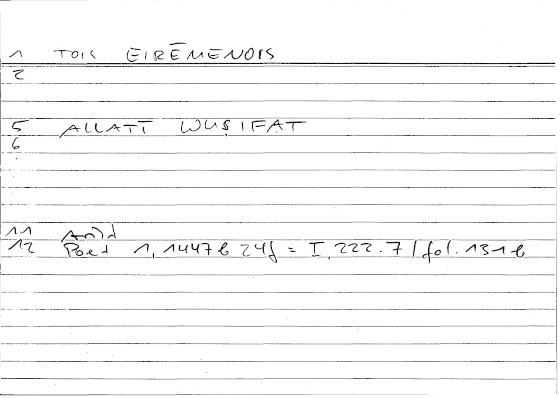 1 TOIS EIRĒMENOIS
2
5 ALLATĪ WUṢIFAT
6
11 Arist
12 Poet 1, 1447 b 24f = I, 222.7 / fol. 131 b